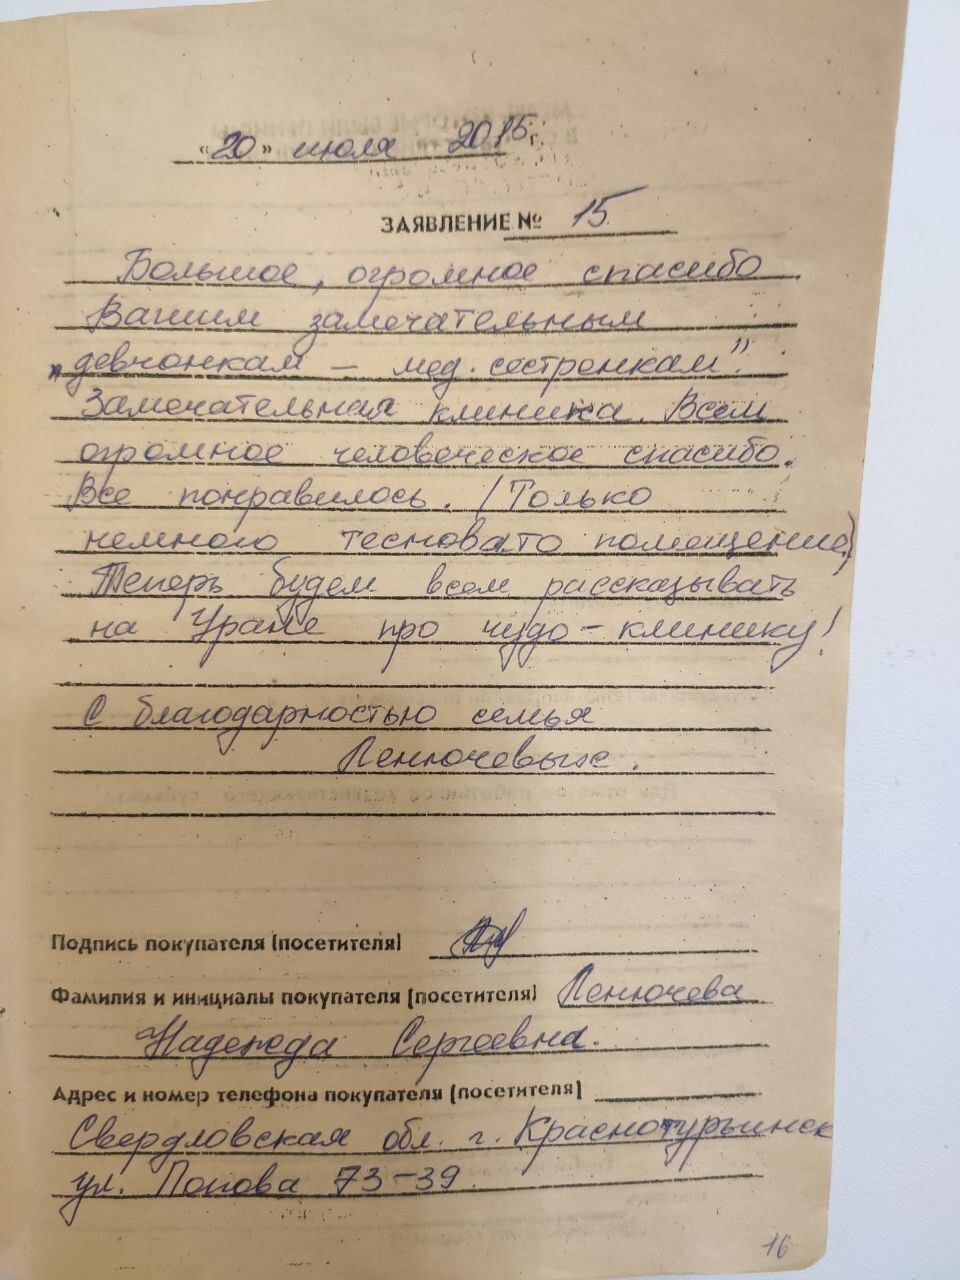 «20» июля 2015г.
ЗАЯВЛЕНИЕ № 15.
Большое, огромное спасибо
Вашим замечательным
„девчонкам – мед. сестренкам".
Замечательная клиника. Всем
огромное человеческое спасибо.
Все понравилось. (Только
немного тесновато помещение)
Теперь будем всем рассказывать
на Урале про чудо-клинику!
С благодарностью семья
Ленючевых.
Подпись покупателя (посетителя)
Фамилия и инициалы покупателя (посетителя) Ленючева
Надежда Сергеевна.
Адрес и номер телефона покупателя (посетителя)
Свердловская обл. г. Краснотурьинск
ул. Попова 73-39
16